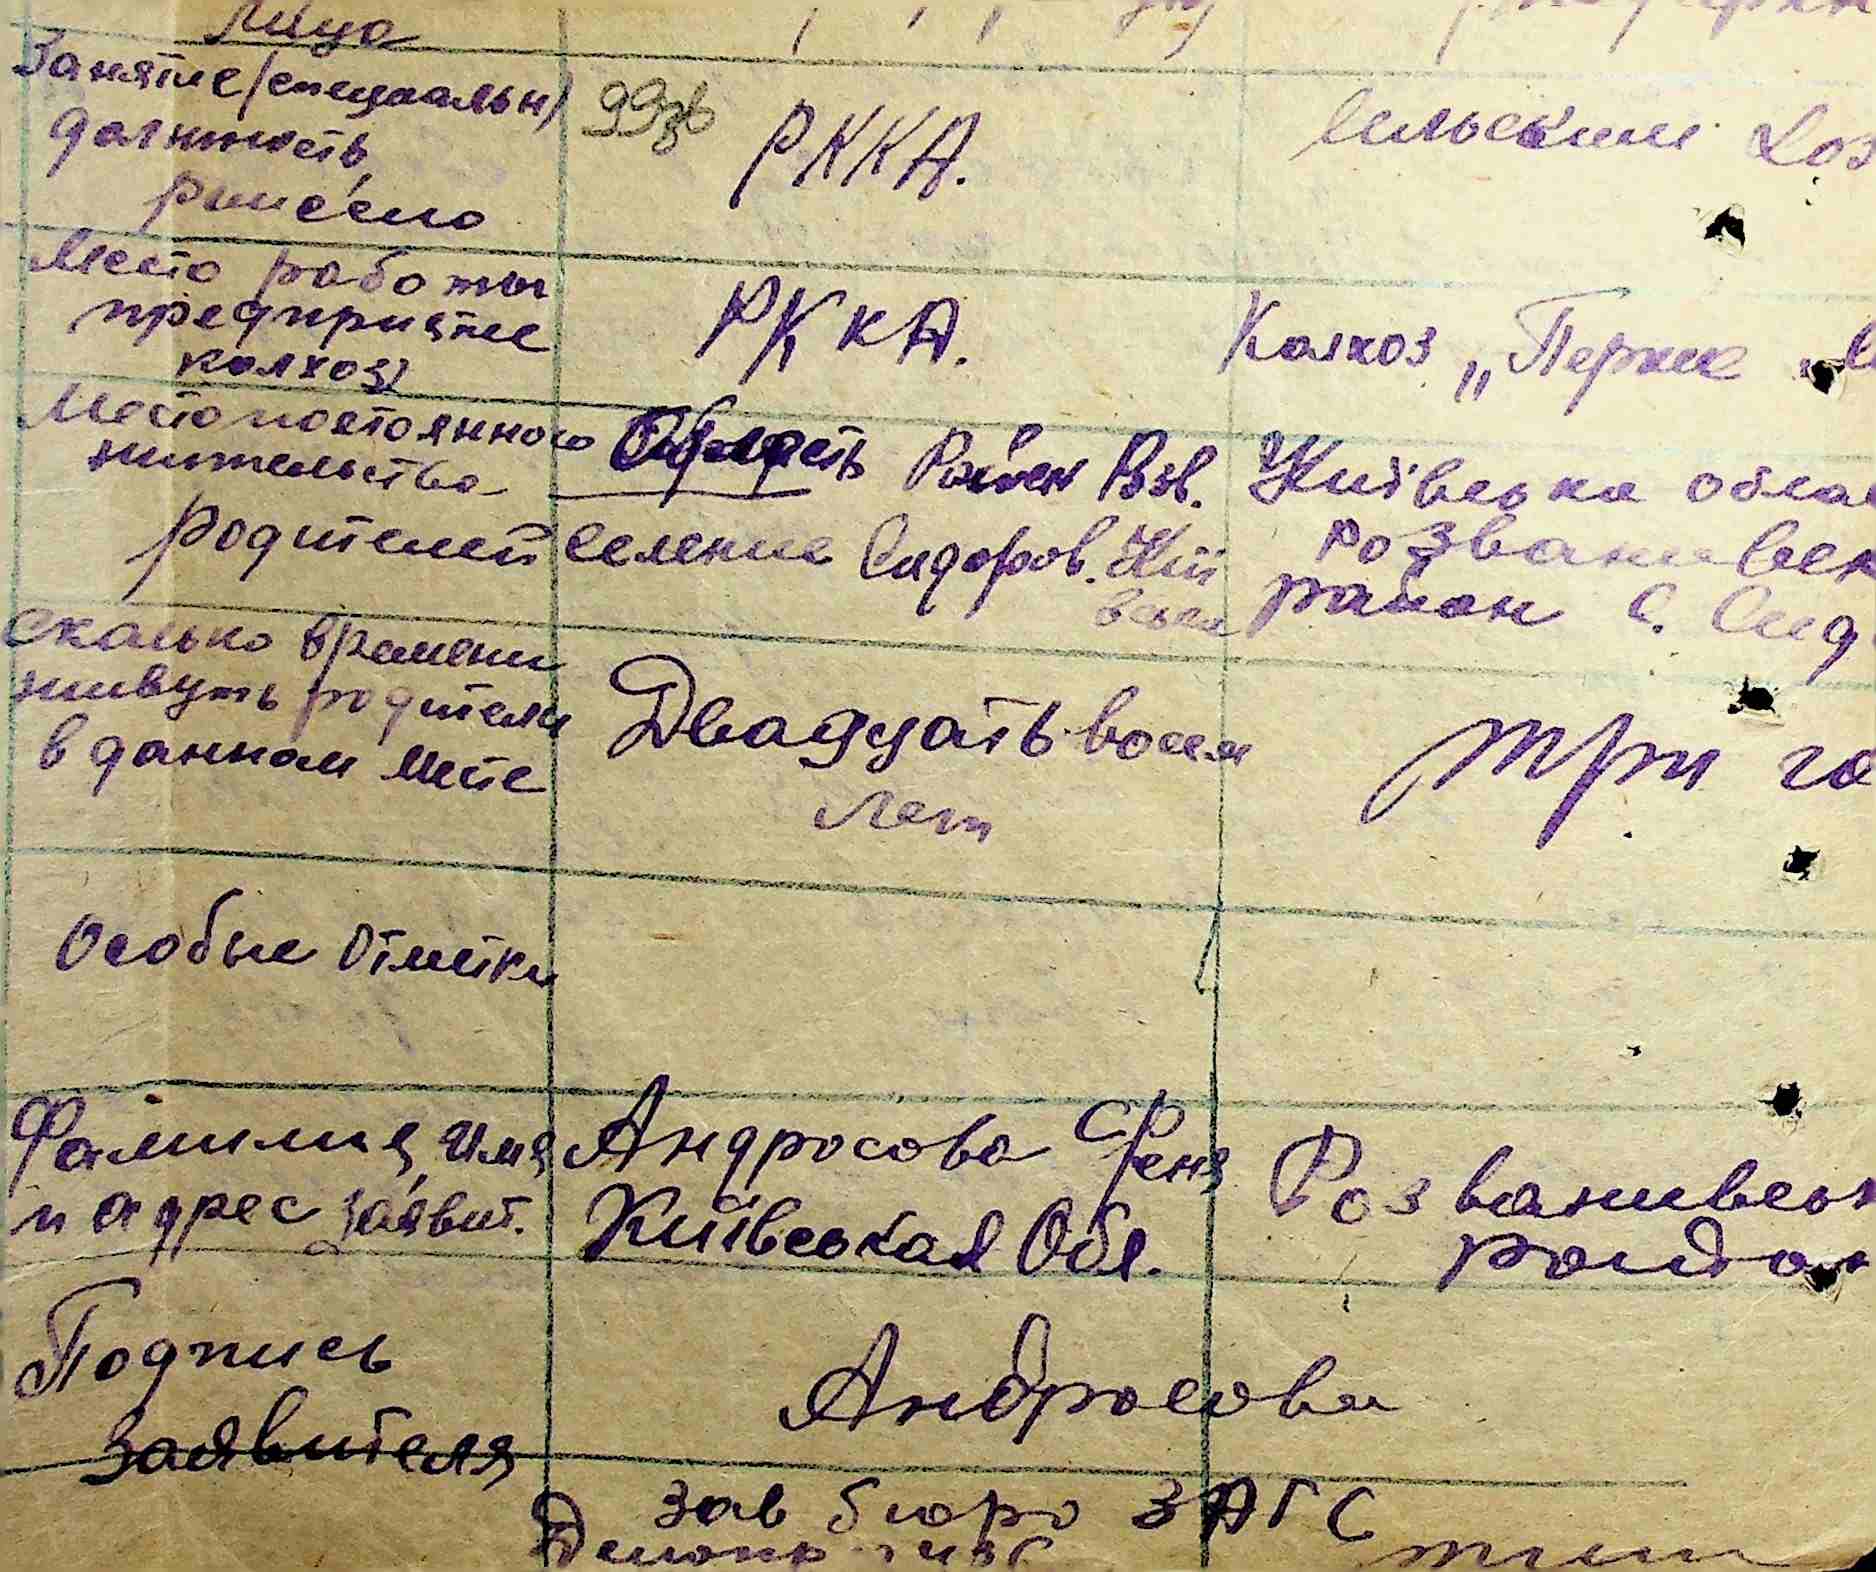 лица
Занятие (специальн)
должность,
ремесло
РККА.
Сельским Хоз
Место работы
предприятие
колхоз)
РККА.
Колхоз „Перше
Место постоянного
жительства
родителей
Область Район Роз.
селение Сидоров. Киі
Київська облас
Розваживськ
район с. Сид
Сколько времени
живуть родители
в данном месте
Двадцать восем
лет
три го
Особые отметки
Фамилия, имя
и адрес заявит.
Андросова Феня
Київськая Обл.
Розваживськ
район
Подпись
заявителя
Андросова
Зав бюро ЗАГС